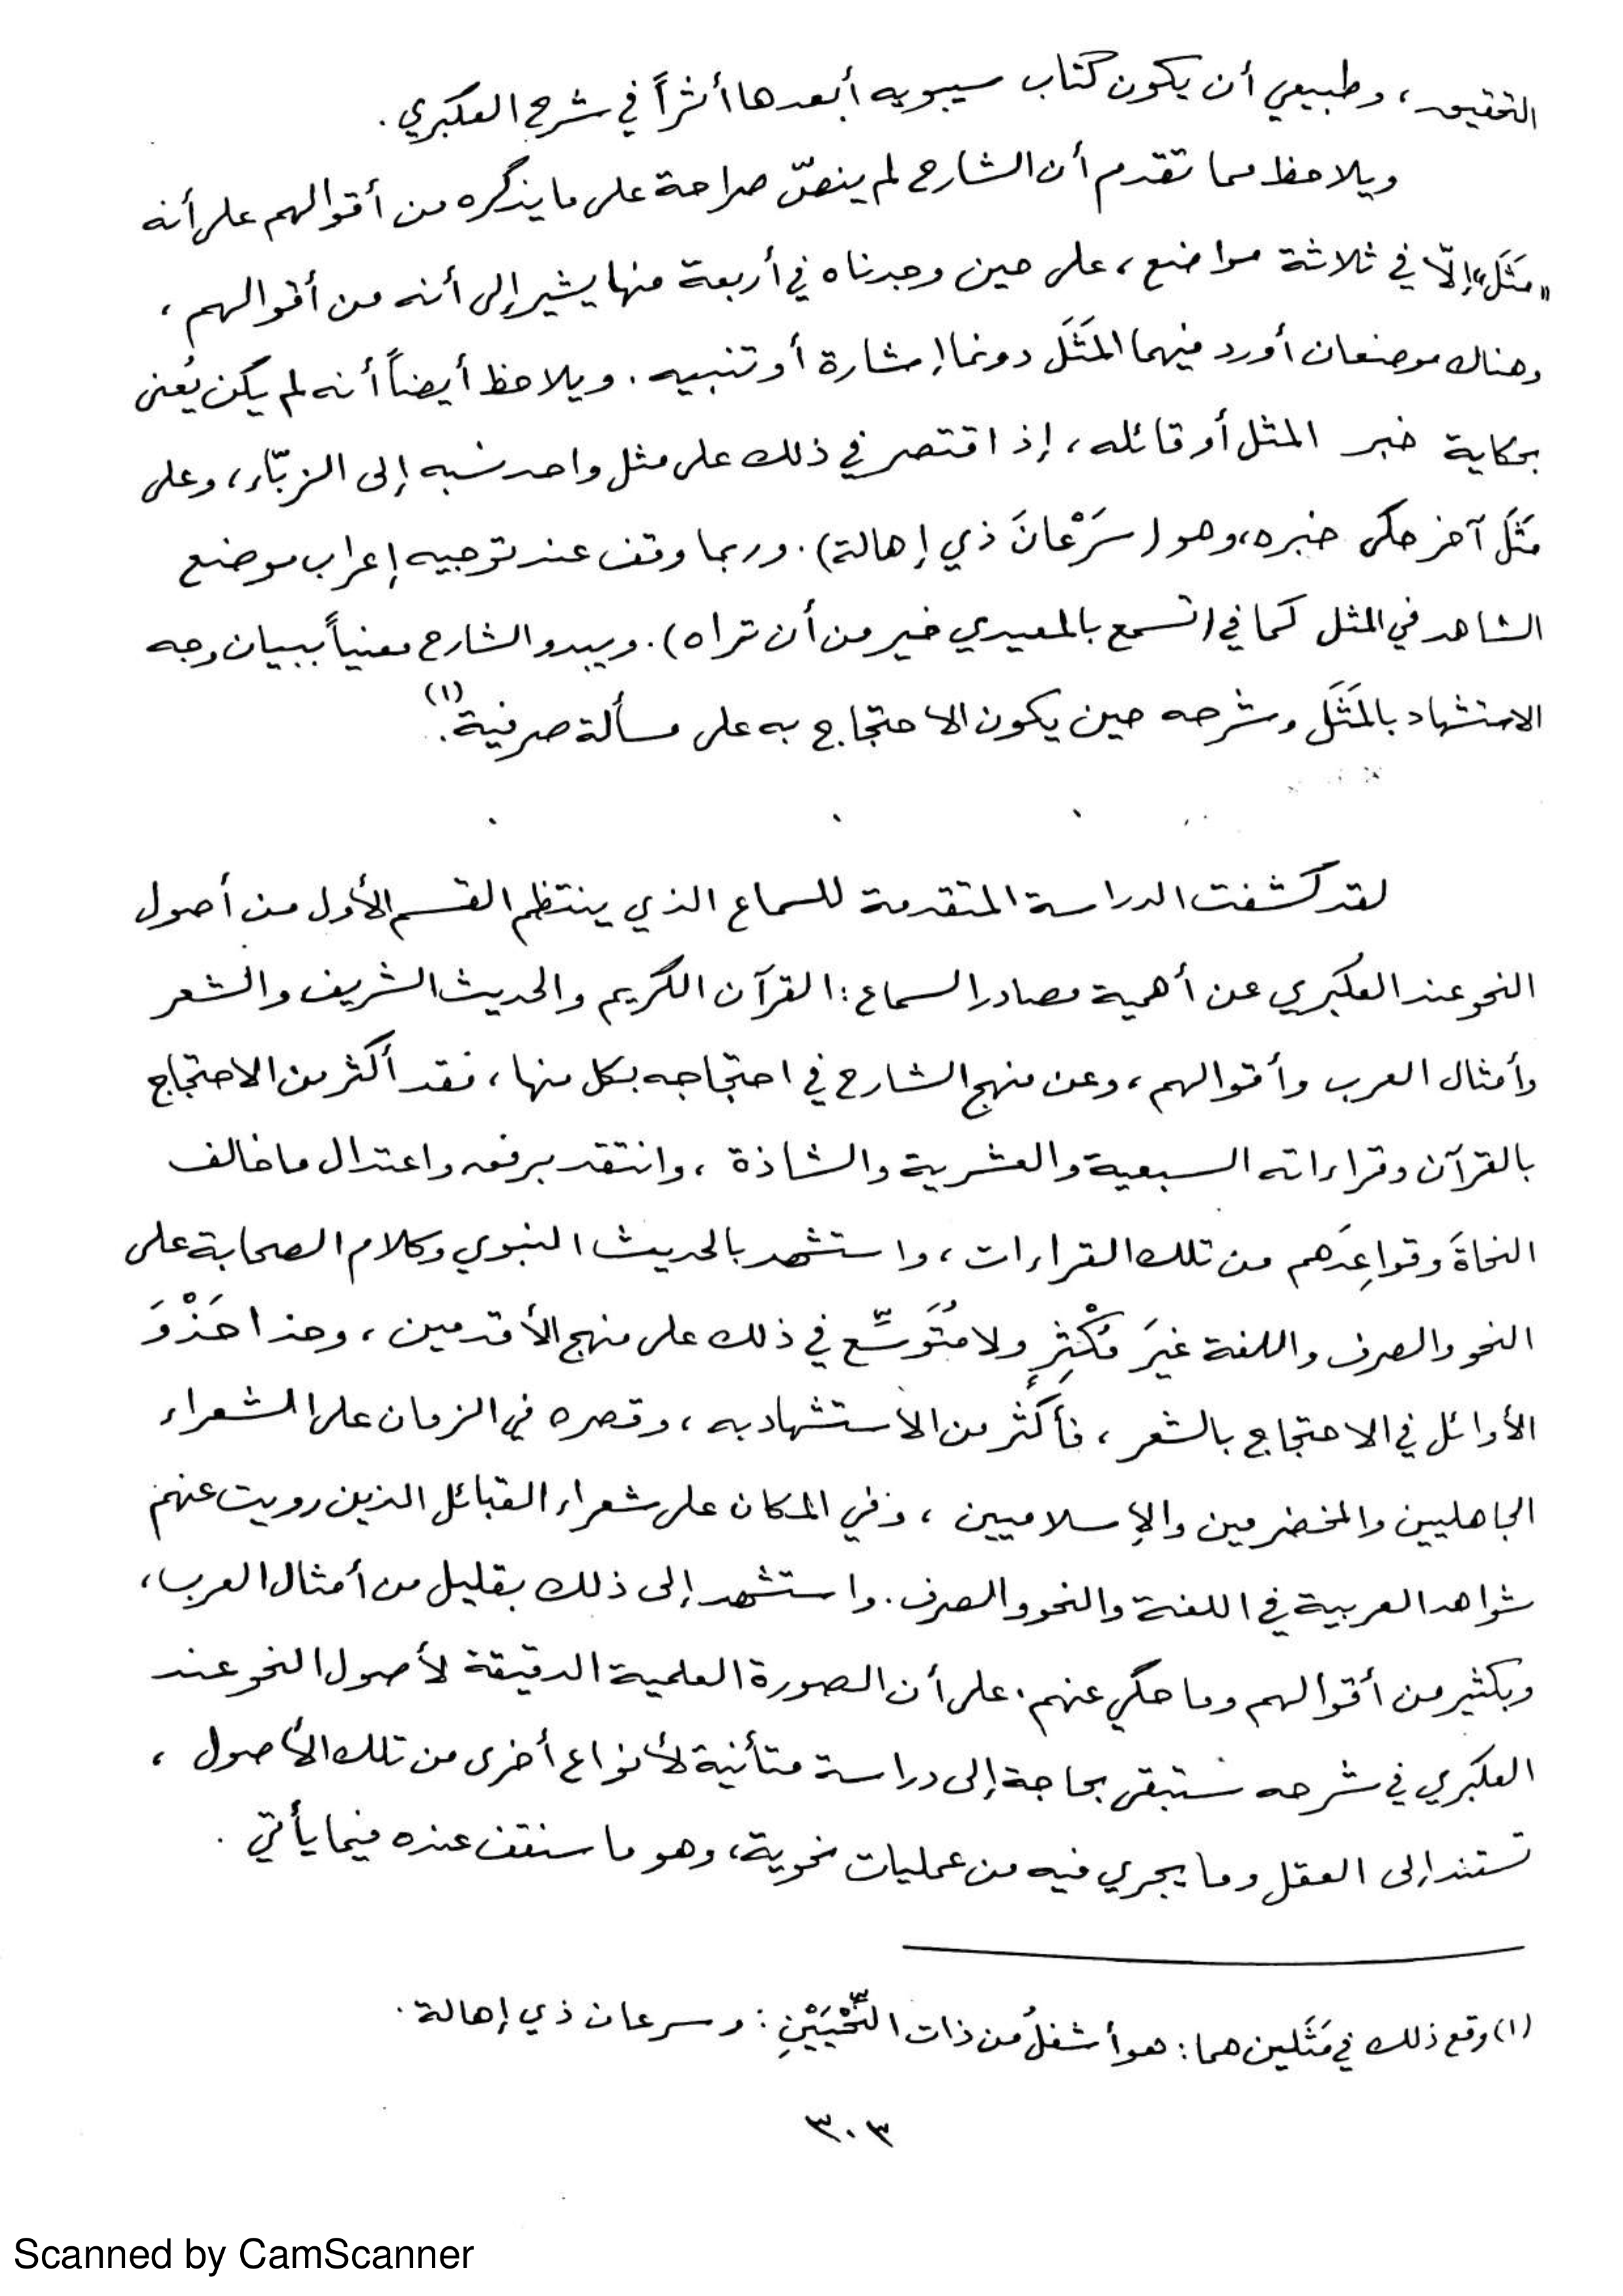 التحقيق، وطبيعي أن يكون كتاب سيبويه أبعدها أثراً في شرح العكبري.
ويلاحظ مما تقدم أن الشارح لم ينصّ صراحة على ما يذكره من أقوالهم على أنه
"مَثَل" إلّا في ثلاثة مواضع، على حين وجدناه في أربعة منها يشير إلى أنه من أقوالهم،
وهناك موضعان أورد فيهما المَثَلَ دونما إشارة أو تنبيه. ويلاحظ أيضاً أنه لم يكن يُعنى
بحكاية خبر المثل أو قائله، إذ اقتصر في ذلك على مثل واحد نسبه إلى الزبّاء، وعلى
مَثَل آخر حكى خبره، وهو (سَرْعَانَ ذي إهالة). وربما وقف عند توجيه إعراب موضع
الشاهد في المثل كما في (تسمع بالمعيدي خير من أن تراه). ويبدو الشارح معنياً ببيان وجه
الاستشهاد بالمَثَل وشرحه حين يكون الاحتجاج به على مسألة صرفية(١).
لقد كشفت الدراسة المتقدمة للسماع الذي ينتظم القسم الأول من أصول
النحو عند العكبري عن أهمية مصادر السماع: القرآن الكريم والحديث الشريف والشعر
وأمثال العرب وأقوالهم، وعن منهج الشارح في احتجاجه بكل منها، فقد أكثر من الاحتجاج
بالقرآن وقراءاته السبعية والعشرية والشاذة، وانتقد برفق واعتدال ما خالف
النحاةَ وقواعِدَهم من تلك القراءات، واستشهد بالحديث النبوي وكلام الصحابة على
النحو والصرف واللغة غيرَ مُكْثِرٍ ولا مُتَوسِّع في ذلك على منهج الأقدمين، وحذا حَذْوَ
الأوائل في الاحتجاج بالشعر، فأكثر من الاستشهاد به، وقصره في الزمان على الشعراء
الجاهليين والمخضرمين والإسلاميين، وفي المكان على شعراء القبائل الذين رويت عنهم
شواهد العربية في اللغة والنحو والصرف. واستشهد إلى ذلك بقليل من أمثال العرب،
وبكثير من أقوالهم وما حكي عنهم. على أن الصورة العلمية الدقيقة لأصول النحو عند
العكبري في شرحه ستبقى بحاجة إلى دراسة متأنية لأنواع أخرى من تلك الأصول،
تستند إلى العقل وما يجري فيه من عمليات نحوية، وهو ما سنقف عنده فيما يأتي.
(١) وقع ذلك في مَثَلين هما: هو أشغلُ من ذات النِّحْيَيْنِ: وسرعان ذي إهالة.
٣٠٣
Scanned by CamScanner